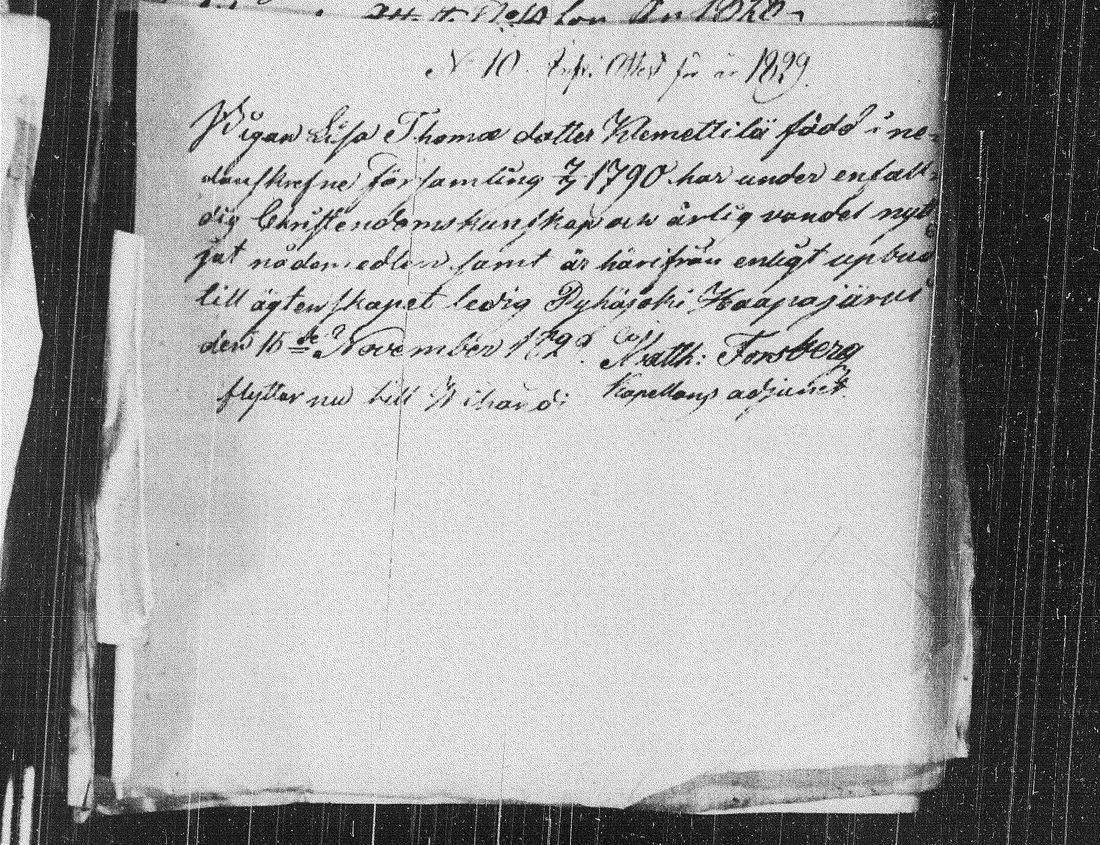 N 10. Infl: Attest för år 1829.
Pigan Lisa Thomæ dotter Klemettilä född i ne-
danskrefne Församling 7/7 1790 har under enfall-
dig Christendomskunskap och ärlig vandel nytt-
jat nådemedlen samt är härifrån enligt upbud
till ägtenskapet ledig Pyhäjoki Haapajärvi
den 15de November 182 Matth: Forsberg
flyttar nu till Kapellans adjunct.